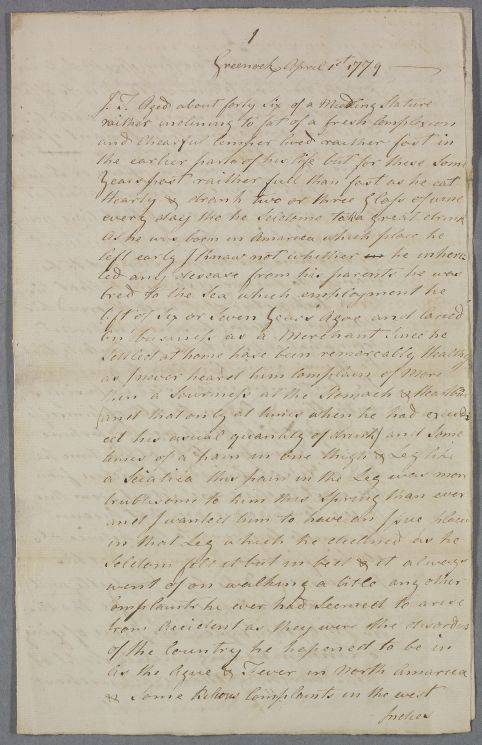 1
Greenock April 1st 1779
J. T. Aged about forty Six of a Midling Stature
raither inclining to fat of a fresh Complexion
and Chearful temper lived raither fast in
the earlier parts of his life but for these Some
Years past raither full than fast as he eat
Hearty & drank two or three Glass of wine
every day tho he Seldome took a Great drink
As he was born in America which place he
left early I know not whether he inheri
ted any disease from his parents he was
bred to the Sea which employment he
left of Six or Seven Years Agoe and caried
on business as a Merchant Since he
Setled at home have been remarcably Healthy
as I never heard him Complain of More
than a Sourness at the Stomach & Heartburn
(and that only at times when he had exceed
ed his usual quantity of drink) and Some
times of a pain in one thigh & Leg like
a Sciatica this pain in the Leg was mor
trublesome to him this Spring than ever
and I wanted him to have an Issue place
in that Leg which he declined as he
Seldom felt it but in bed & it always
went of on walking a litle any other
Complaints he ever had Seemed to arise
from Accident as they were the disorders
of the Country he hapened to be in
As the Ague & Fever in North Amarica
& Some Bilious Complaints in the west
Indies